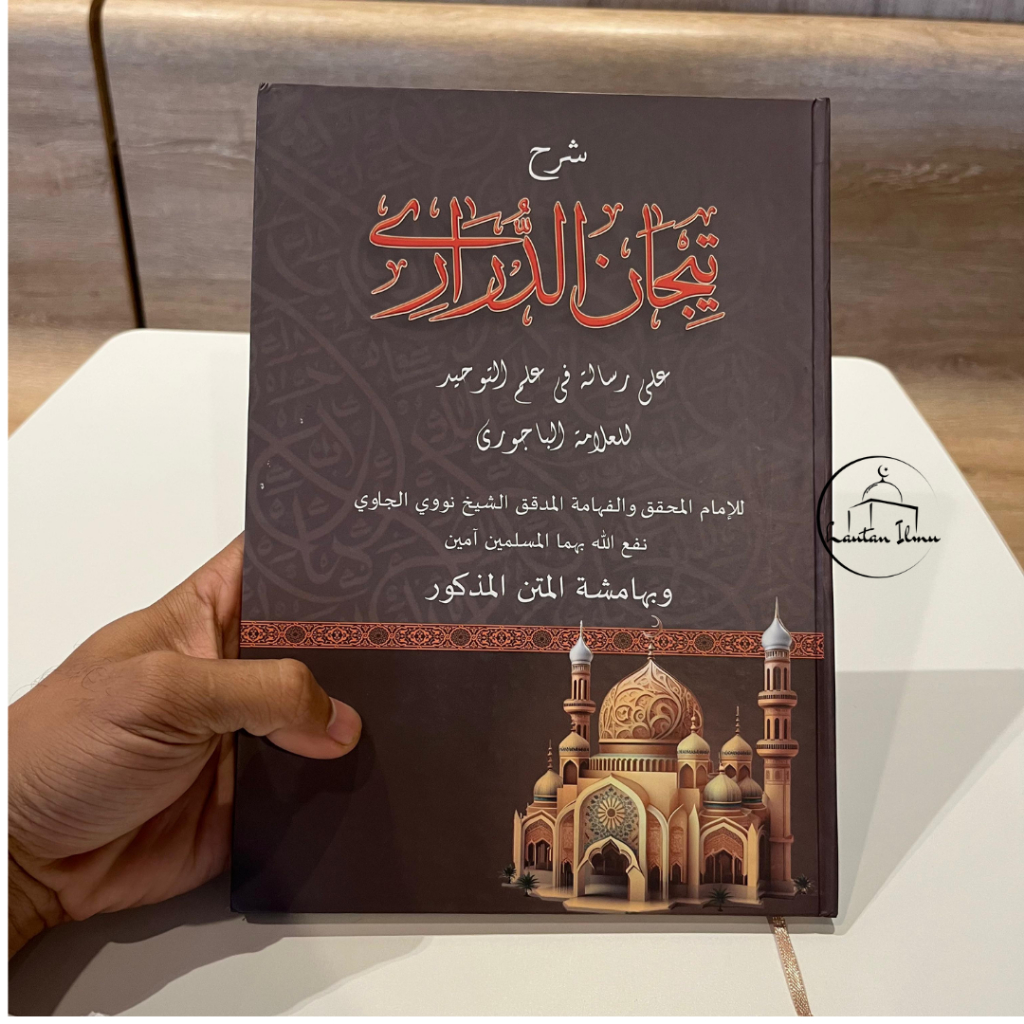 شرح
تيجان الدُّرَارِي
على رسالة في علم التوحيد
للعلامة الباجوري
للإمام المحقق والفهامة المدقق الشيخ نووي الجاوي
نفع الله بهما المسلمين آمين
وبهامشة المتن المذكور
Lautan Ilmu